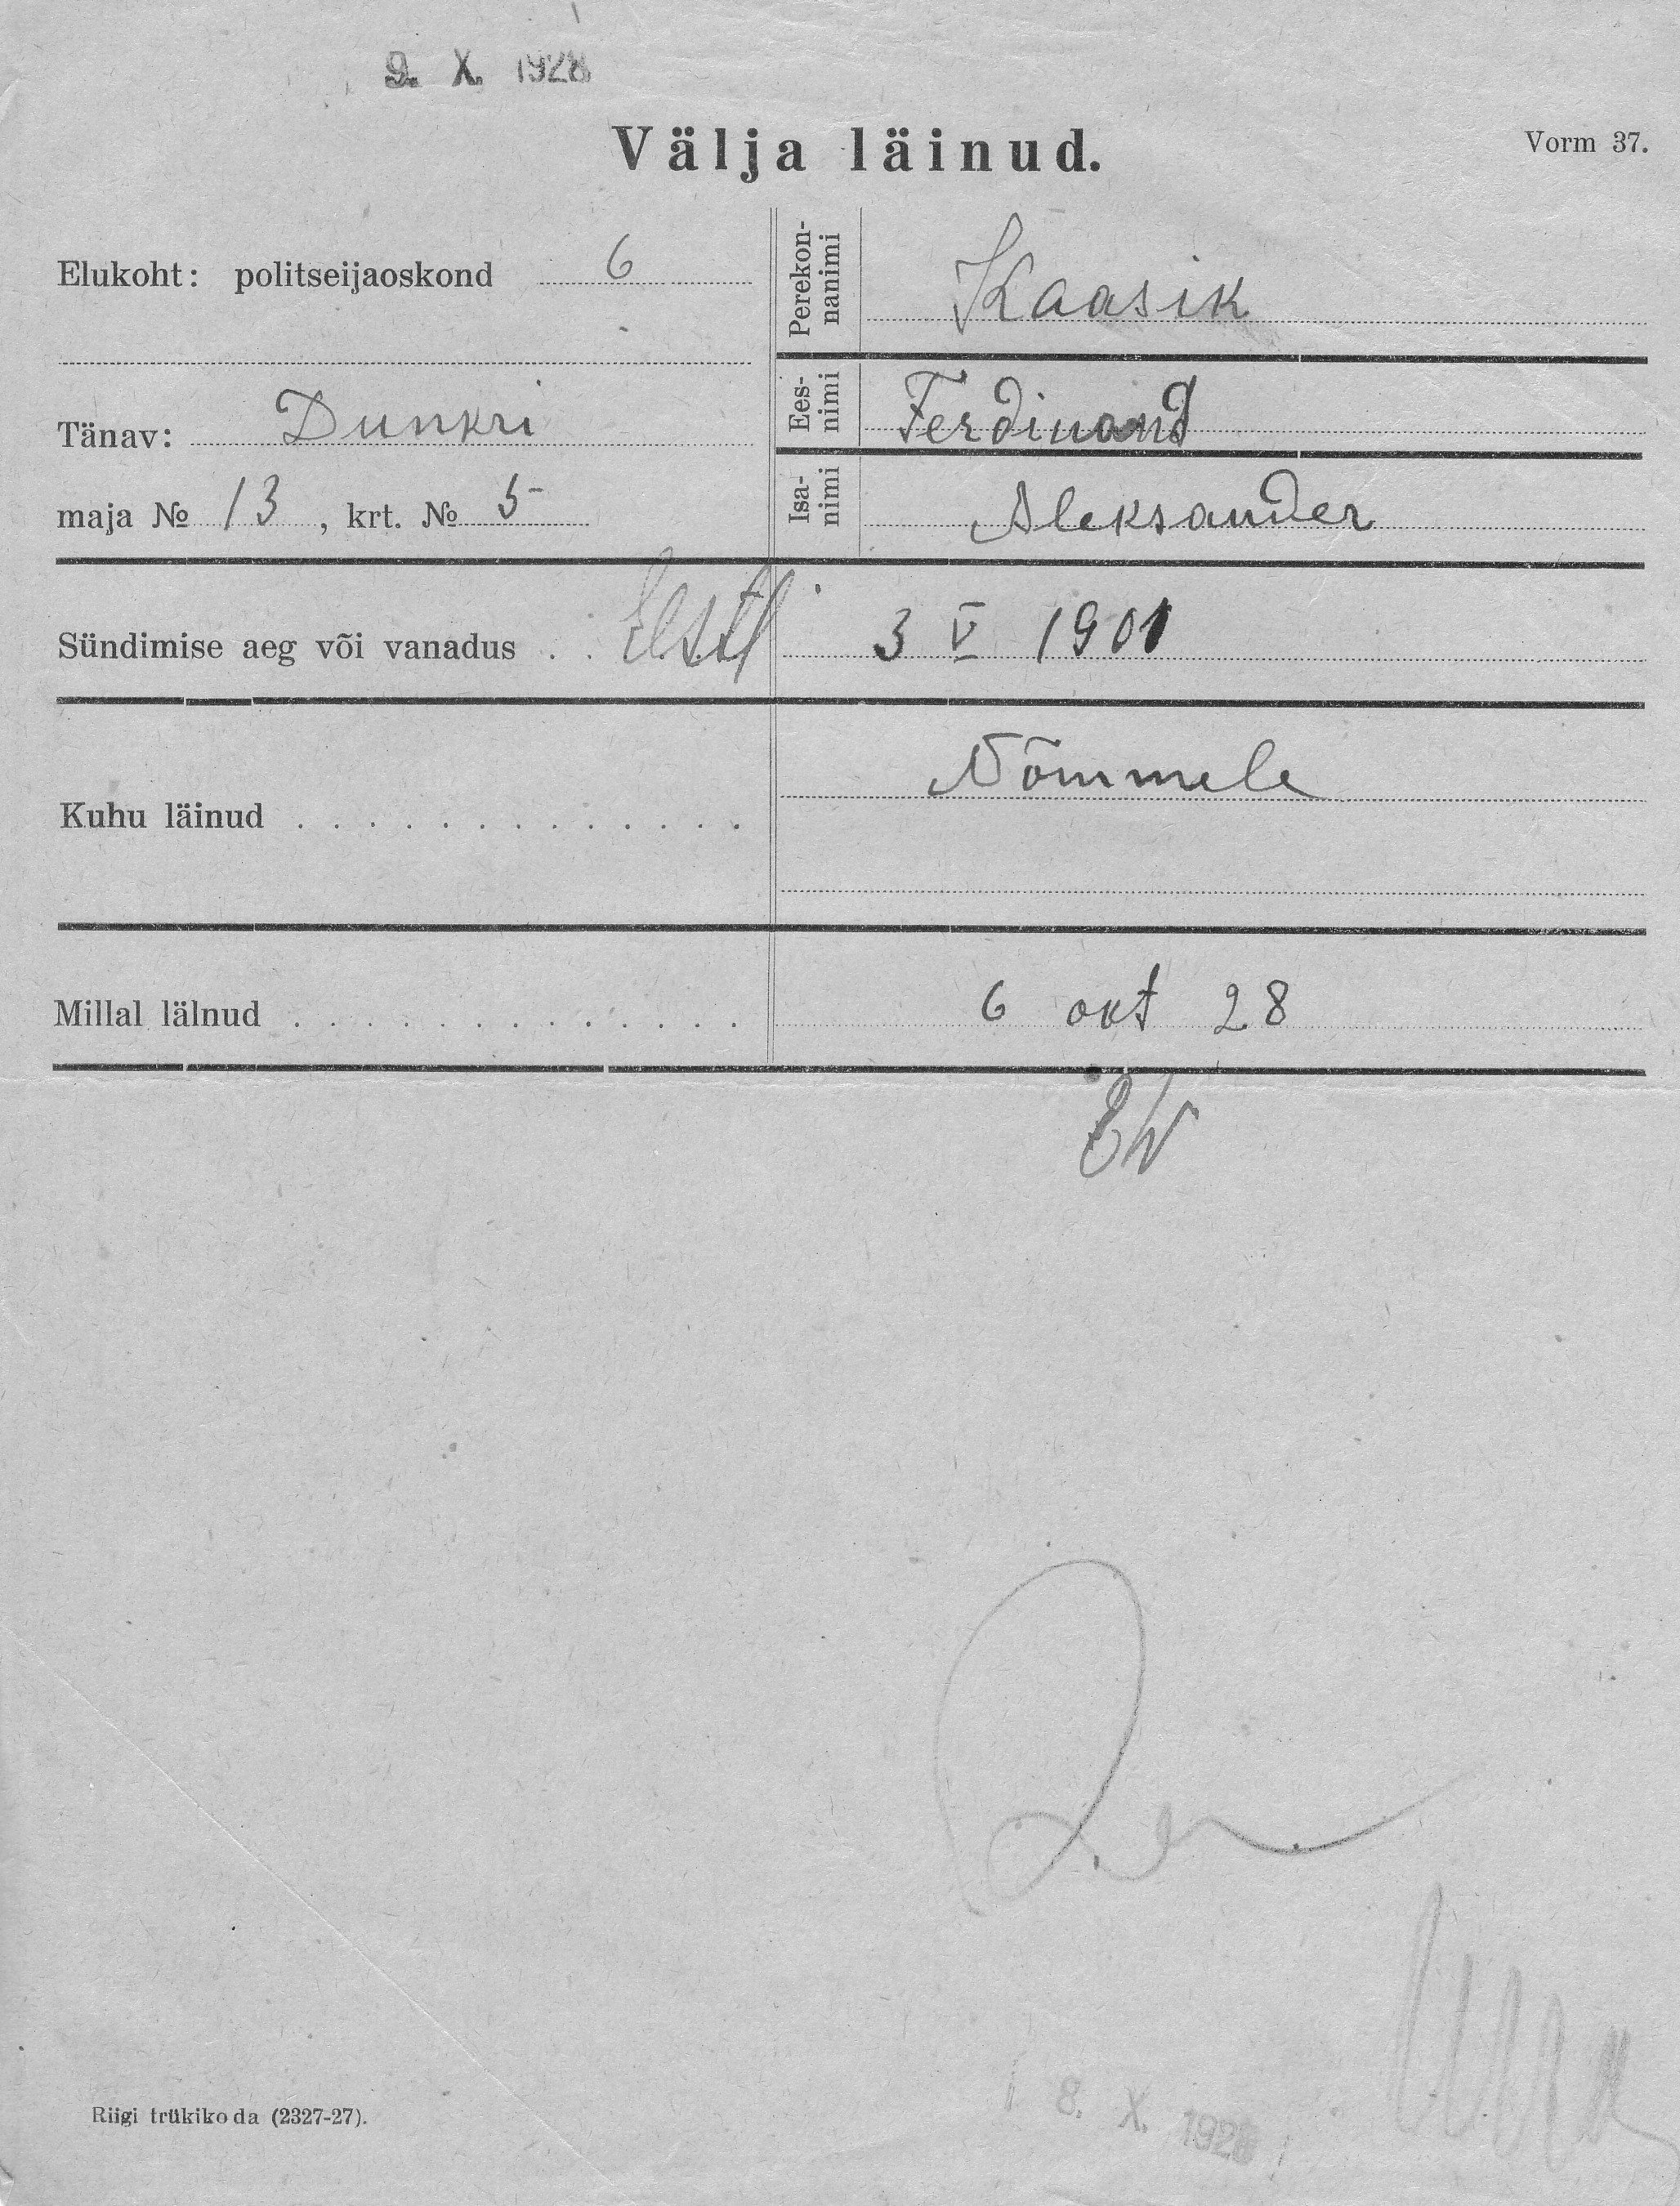 9. X. 1928
Välja läinud.
Vorm 37.
Elukoht: politseijaoskond 6
Perekon-
nanimi
Kaasik
Tänav: Dunkri
Ees-
nimi
Ferdinand
maja № 13, krt. № 5
Isa-
nimi
Aleksander
Sündimise aeg või vanadus . . Eesti 3 V 1901
Kuhu läinud . . . . . . . . . . . . . Nõmmele
Millal lälnud . . . . . . . . . . . . . 6 okt 28
EW
8. X. 1928
Riigi trükikoda (2327-27).